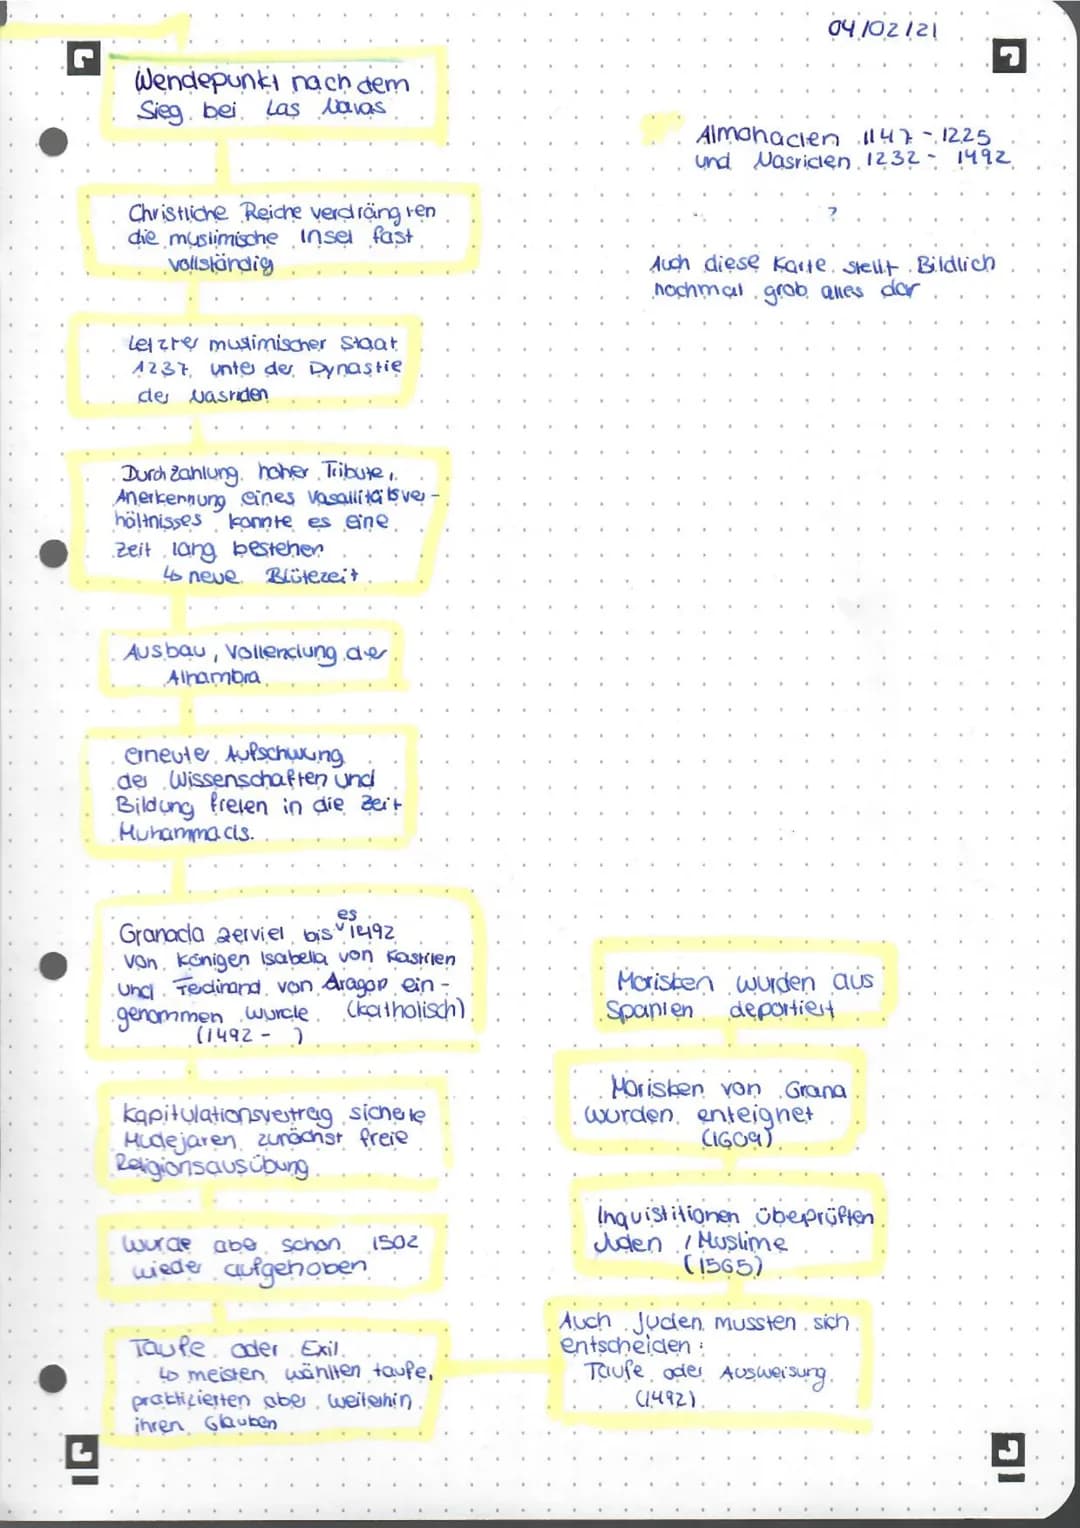 04/02/21
Wendepunkt nach dem
Sieg bei Las Navas
Almohaden 1147 - 1225
und Nasriden 1232 - 1492
?
Auch diese Karte stellt Bildlich
nochmal grob alles dar
Christliche Reiche verdrängten
die muslimische Insel fast
vollständig
Letzter muslimischer Staat
1237 unter der Dynastie
der Nasriden
Durch Zahlung hoher Tribute,
Anerkennung eines Vasallitätsver-
hältnisses konnte es eine
Zeit lang bestehen
↳ neue Blütezeit
Ausbau, Vollendung der
Alhambra
erneuter Aufschwung
der Wissenschaften und
Bildung frelen in die Zeit
Muhammads.
Granada zerviel bis es 1492
von Königen Isabella von Kastilen
und Ferdinand von Aragon ein-
genommen wurde (katholisch)
(1492 - )
Kapitulationsvertrag sicherte
Mudejaren zunächst freie
Religionsausübung
wurde aber schon 1502
wieder aufgehoben
Taufe oder Exil
↳ meisten wählten taufe,
praktizierten aber weiterhin
ihren Glauben
Morisken wurden aus
Spanien deportiert
Morisken von Grana
wurden enteignet
(1609)
Inquistitionen überprüften
Juden / Muslime
(1565)
Auch Juden mussten sich
entscheiden:
Taufe oder Ausweisung
(1492)